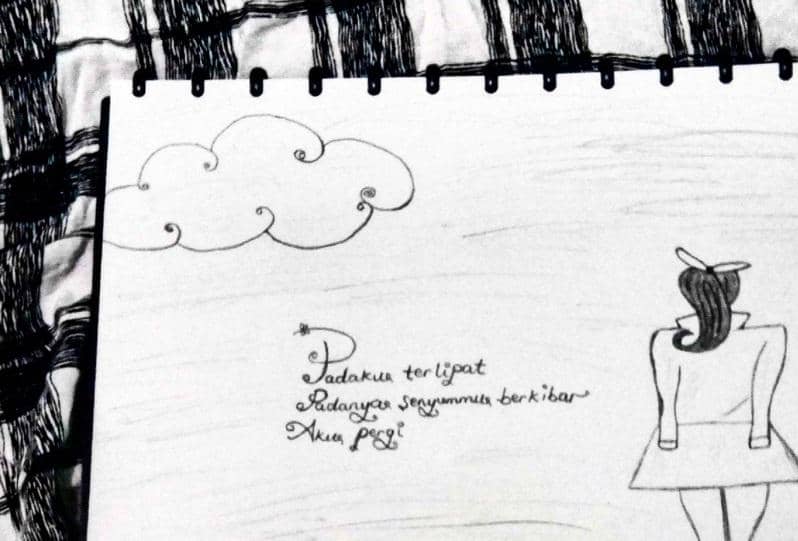 Padaku terlipat
Padanya senyummu berkibar
Aku pergi